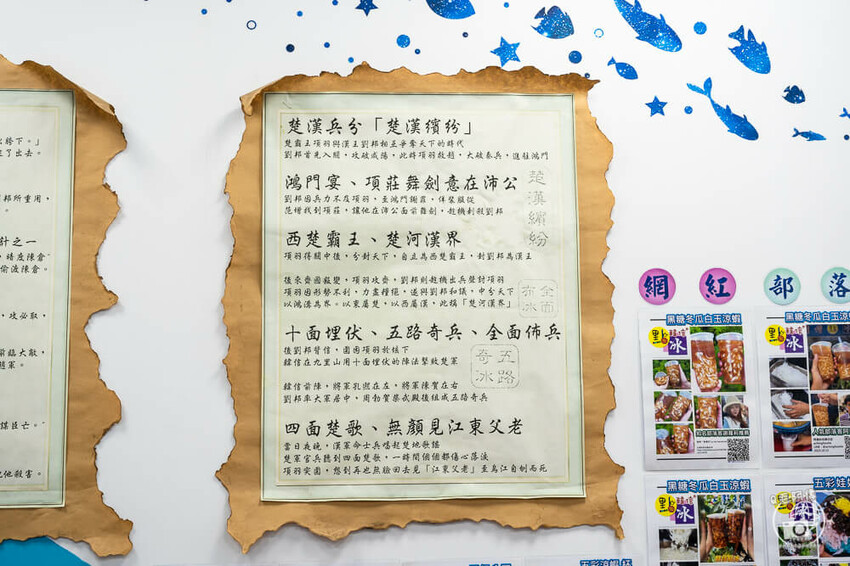 出胯下。」
走了出去。
邦所重用，
計之一
，暗度陳倉
偷渡陳倉。
，攻必取，
前臨大敵，
謀臣亡。」
他殺害。
楚漢兵分「楚漢繽紛」
楚霸王項羽與漢王劉邦相互爭奪天下的時代
劉邦首先入關，攻破咸陽，此時項羽敖趙，大破秦兵，進駐鴻門
鴻門宴、項莊舞劍意在沛公
劉邦因兵力不及項羽，至鴻門謝罪，佯裝服從
范增找到項莊，讓他在沛公面前舞劍，趁機刺殺劉邦
楚漢繽紛
西楚霸王、楚河漢界
項羽得關中後，分封天下，自立為西楚霸王，封劉邦為漢王
後來齊國叛變，項羽攻齊，劉邦則趁機出兵聲討項羽
項羽因形勢不利，力盡糧絕，遂與劉邦和議，中分天下
以鴻溝為界。以東屬楚，以西屬漢，此稱「楚河漢界」
全面
布冰
十面埋伏、五路奇兵、全面佈兵
後劉邦背信，圍困項羽於垓下
韓信在九里山用十面埋伏的陣法擊敗楚軍
五路
奇冰
韓信前陣，將軍孔熙在左，將軍陳賀在右
劉邦率大軍居中，周勃賀柴武殿後組成五路奇兵
四面楚歌、無顏見江東父老
當日夜晚，漢軍命士兵唱起楚地歌謠
楚軍官兵聽到四面楚歌，一時間個個都傷心落淚
項羽突圍，想到再也無臉回去見「江東父老」至烏江自刎而死
網紅部落
黑糖冬瓜白玉涼蝦
黑糖冬瓜白玉涼蝦
五彩娃娃
五彩涼蝦